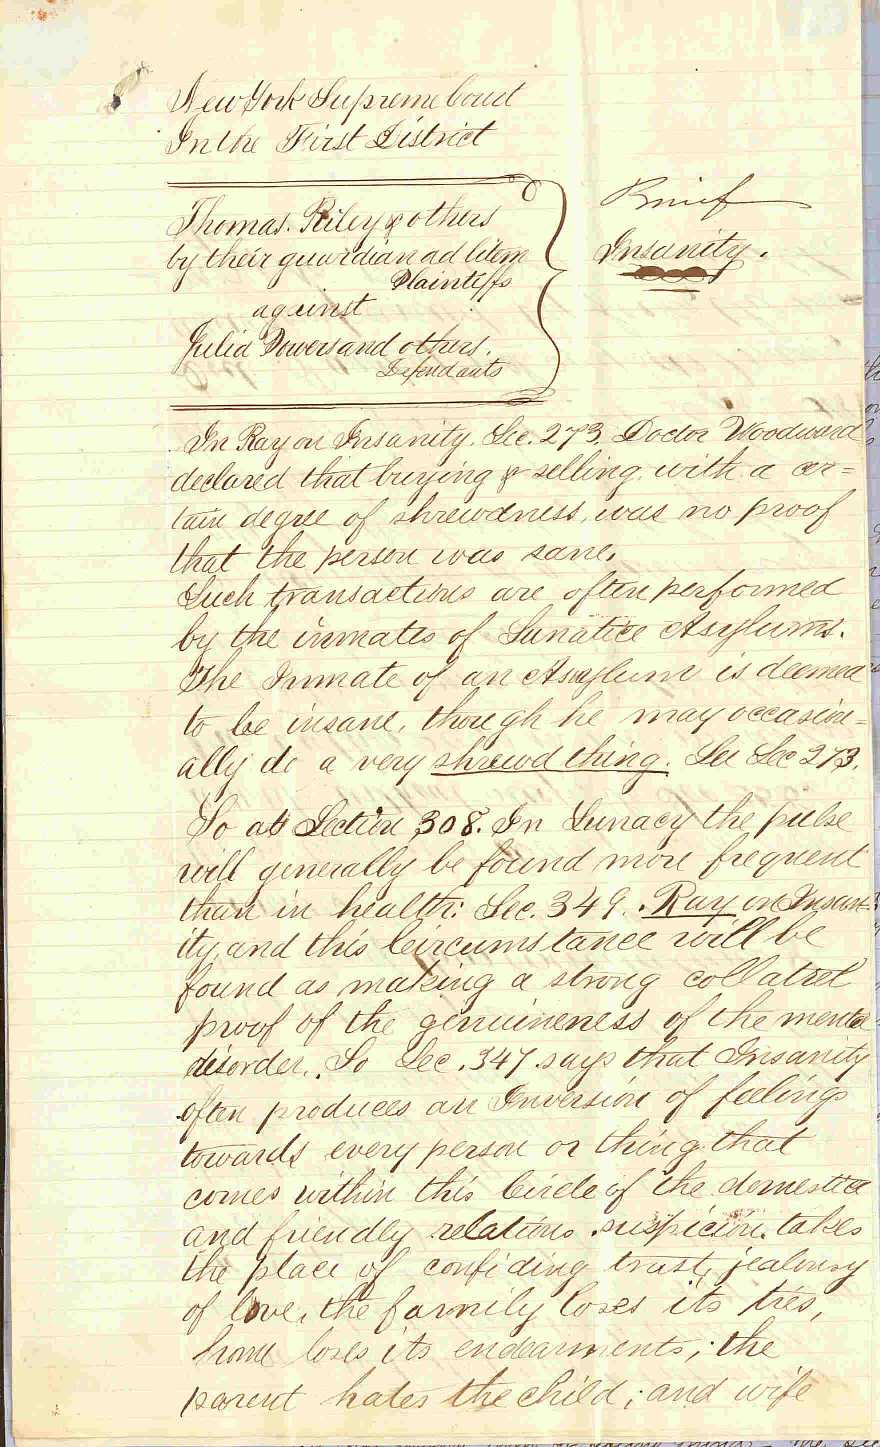 New York Supreme Court
In the First District
Thomas. Riley & others
by their guardian ad litem
Plaintiffs
against
Julia Powers and others.
Defendants
Brief
Insanity.
In Ray on Insanity. Sec. 273, Doctor Woodward
declared that buying & selling, with a cer=
tain degree of shrewdness, was no proof
that the person was sane.
Such transactions are often performed
by the inmates of Lunatice Asylums.
The Inmate of an Asylum is deemed
to be insane, though he may occasion=
ally do a very shrewd thing. See Sec 273.
So at Section 308. In Lunacy the pulse
will generally be found more frequent
than in health: Sec. 349. Ray on Insan=
ity, and this Circumstance will be
found as making a strong collatrel
proof of the genuineness of the mental
disorder. So Sec. 347 says that Insanity
often produces an Inversion of feelings
towards every person or thing that
comes within this Circle of the domestice
and friendly relations. suspicion takes
the place of confiding trust, jealousy
of love, the family loses its ties,
home loses its endearments; the
parent hates the child; and wife